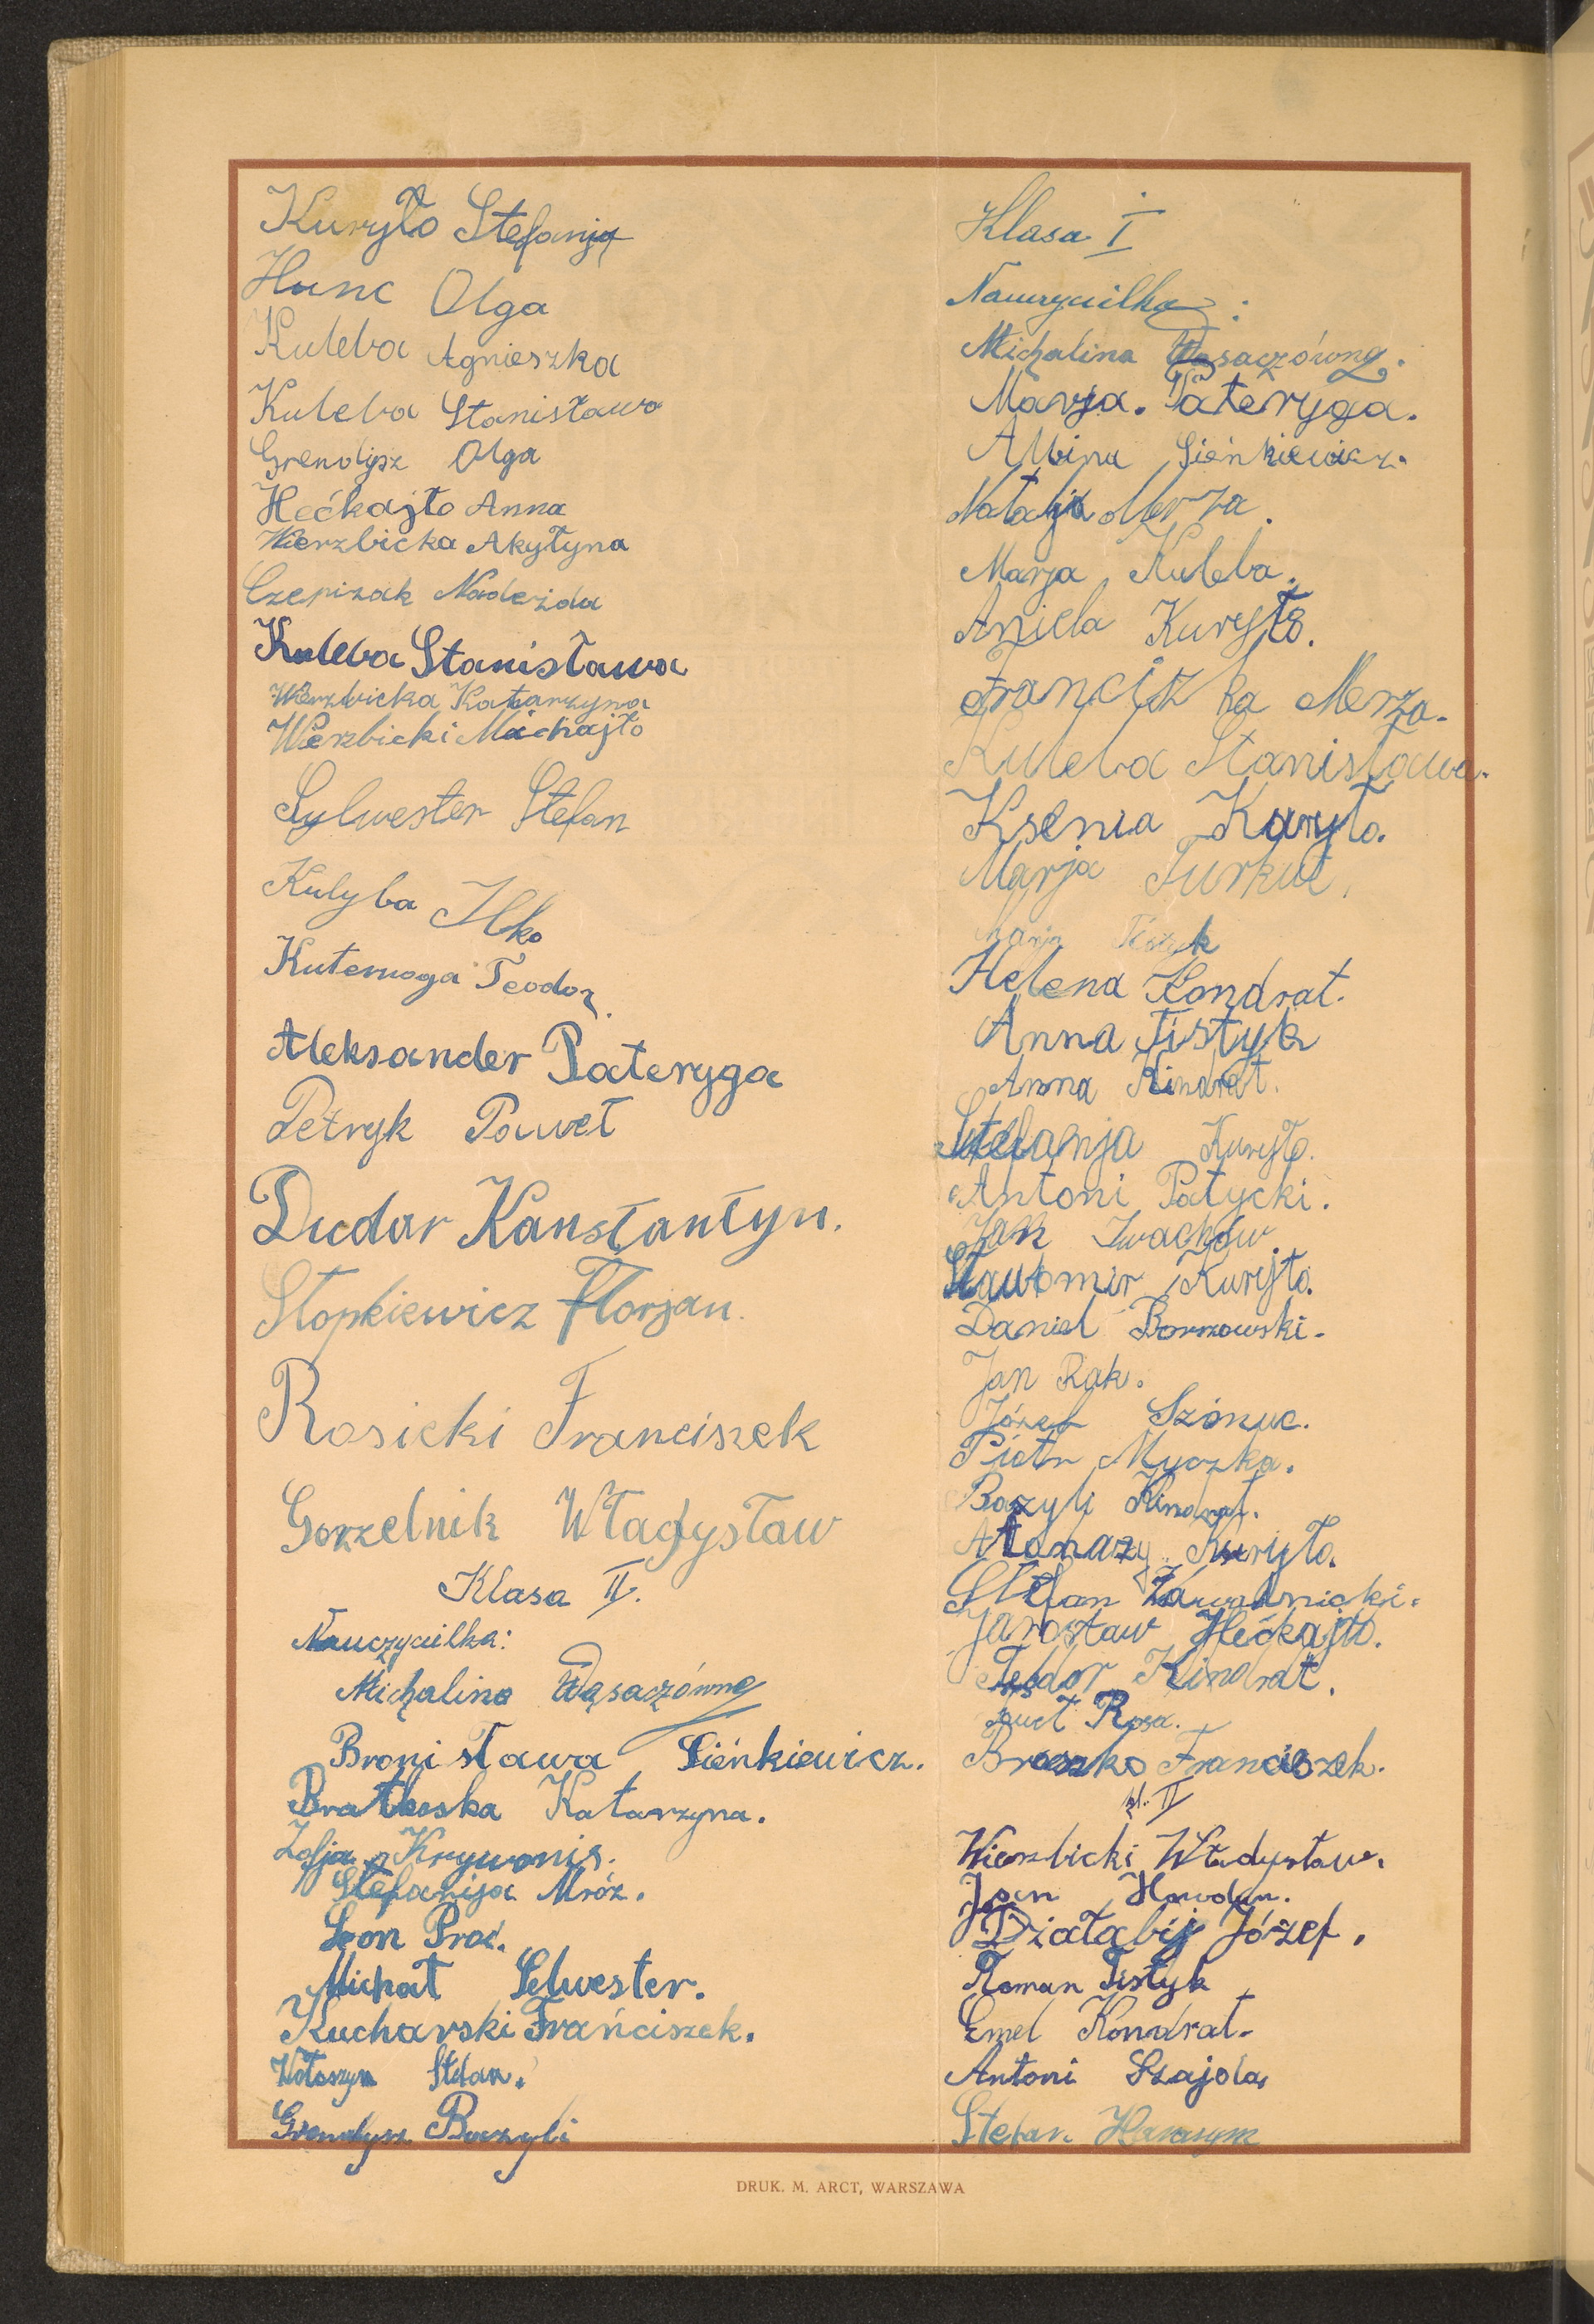 Kuryło Stefanja
Hunc Olga
Kuleba Agnieszka
Kuleba Stanisława
Grendysz Olga
Hećkajło Anna
Wierzbicka Akyłyna
Czepizak Nadeżda
Kuleba Stanisława
Wierzbicka Katarzyna
Wierzbicki Michajło
Sylwester Stefan
Kulyba Ilko
Kuternoga Teodor.
Aleksander Pateryga
Petryk Paweł
Dudar Kanstantyn.
Stopkiewicz Florjan.
Rosicki Franciszek
Gorzelnik Władysław
Klasa II.
Nauczycielka:
Michalina Wąsaczówna
Bronisława Sieńkiewicz.
Katarzyna.
Zofja Krywonis.
Stefanija Mróz.
Leon Proć.
Michał Selwester.
Kucharski Frańciszek.
Wołoszyn Stefan.
Grendysz Bazyli
Klasa I
Nauczycielka:
Michalina Wąsaczówna.
Marja. Pateryga.
Albina Sieńkiewicz.
Natalja Merza.
Marja Kuleba.
Aniela Kuryło.
Franciszka Merza.
Kuleba Stanisława.
Ksenia Kuryło.
Marja Turkut.
Marja
Helena Kondrat.
Anna Tistyk
Anna Kindrat.
Stefanja Kuryło.
Antoni Patycki.
Jan Iwachów
Sławomir Kuryło.
Daniel Borszowski.
Jan Rak.
Józef
Piotr Myczka.
Bazyli Kindrat.
Atanazy Kuryło.
Stefan Zawadnicki.
Jarosław Hećkajło.
Teodor Kindrat.
Rosa.
Broszko Franciszek.
kl. II
Wierzbicki Władysław.
Jan Hawdun.
Działabij Józef.
Roman Tistyk
Emel Kondrat.
Antoni Szajda
Stefan Harasym
DRUK. M. ARCT, WARSZAWA